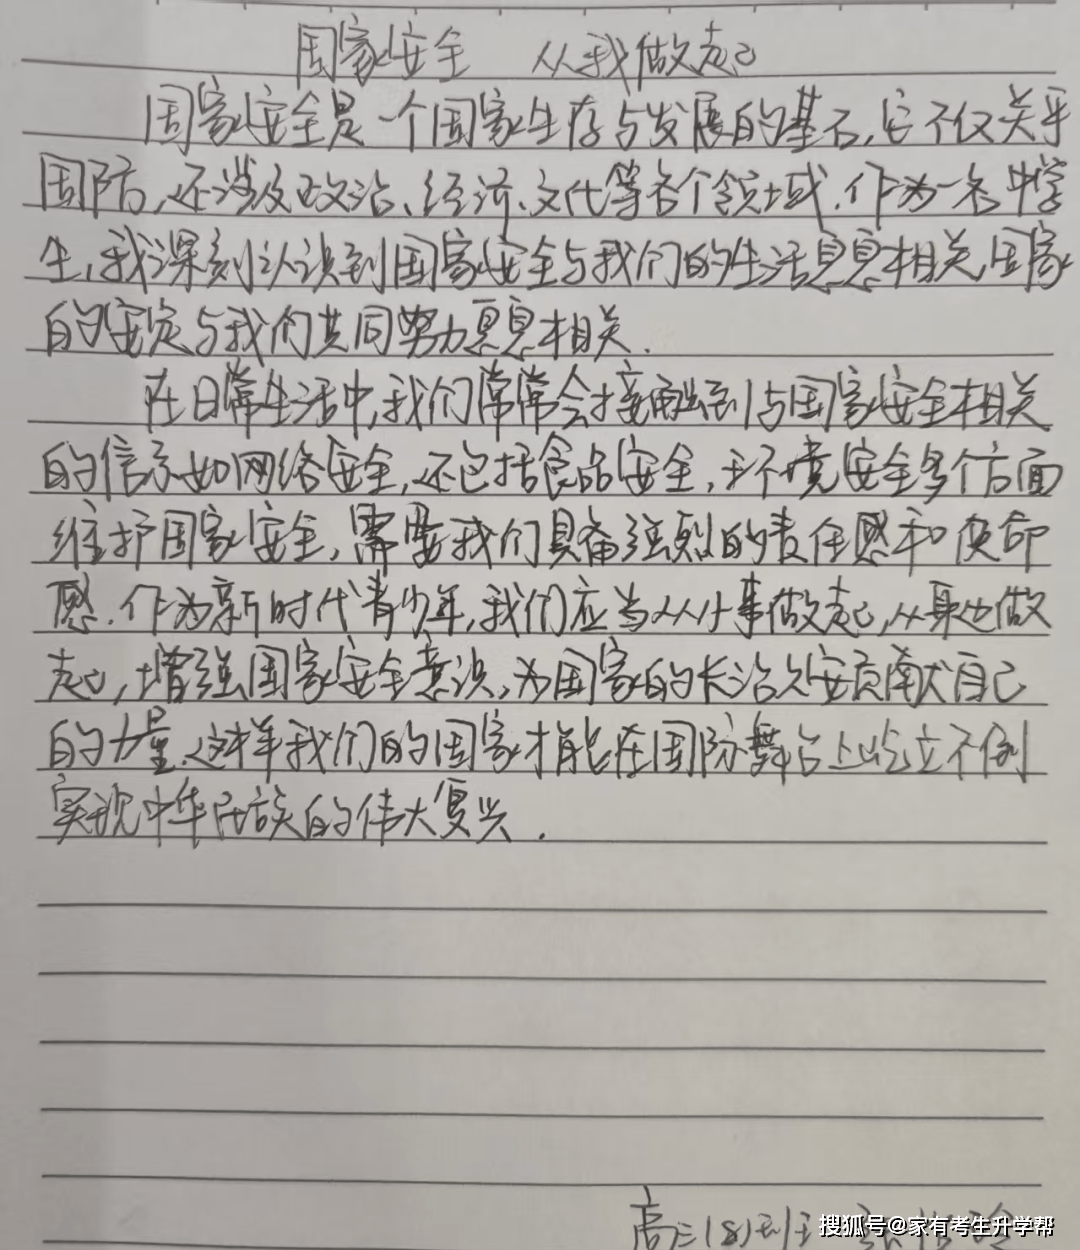 国家安全 从我做起
国家安全是一个国家生存与发展的基石，它不仅关乎
国防，还涉及政治、经济、文代等各个领域．作为一名中学
生，我深刻认识到国家安全与我们的生活息息相关，国家
的安定与我们共同努力息息相关．
在日常生活中，我们常常会接触到与国家安全相关
的信息如网络安全，还包括食品安全，环境安全多个方面
维护国家安全，需要我们具备强烈的责任感和使命
感．作为新时代青少年，我们应当从小事做起，从身边做
起，增强国家安全意识，为国家的长治久安贡献自己
的力量、这样我们的国家才能在国防舞台上屹立不倒
实现中华民族的伟大复兴．
高三(8)班
搜狐号@家有考生升学帮